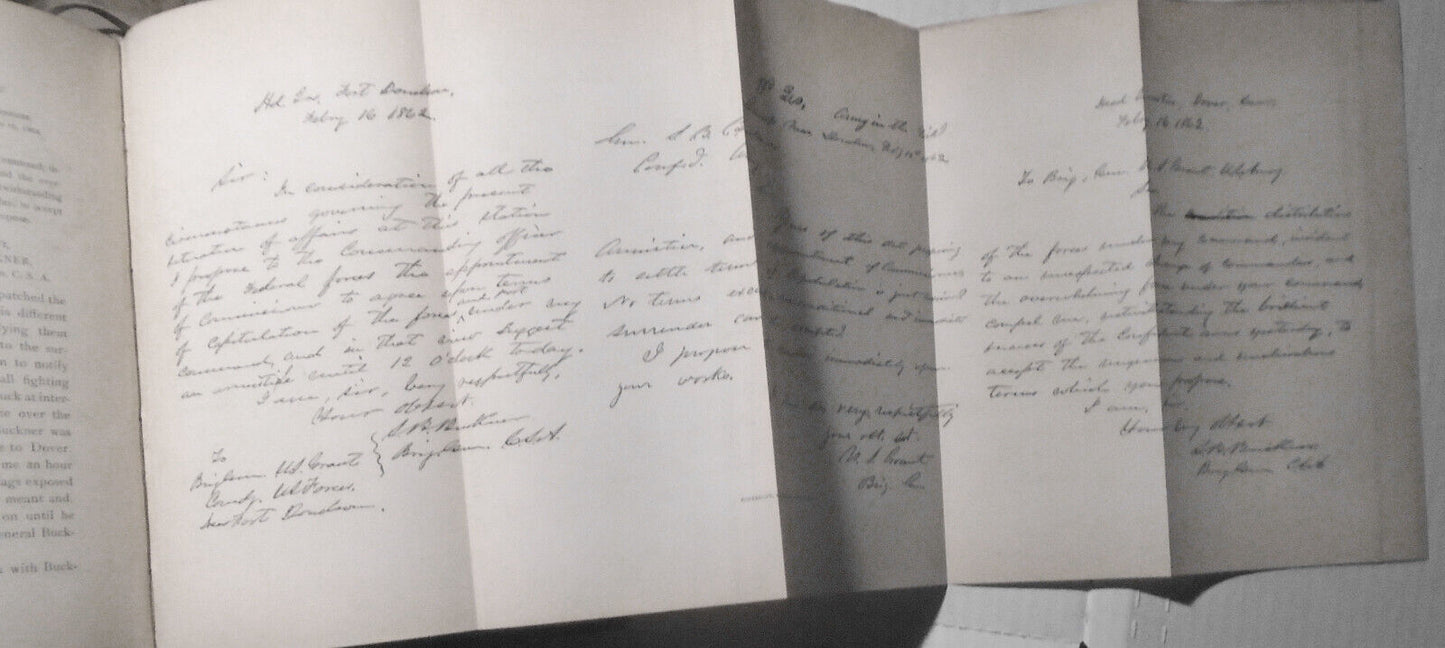 NER,
C. S. A.
patched the
is different
ying them
to the sur-
n to notify
all fighting
uck at inter-
e over the
uckner was
e to Dover.
me an hour
ags exposed
meant and
on until he
eneral Buck-
with Buck-
Hd Qrs, Fort Donelson,
Feby 16 1862.
Sir:
In consideration of all the
circumstances governing the present
situation of affairs at this station
I propose to the Commanding officer
of the Federal forces the appointment
of Commissioners to agree upon terms
of capitulation of the forces and fort under my
command, and in that view suggest
an armistice until 12 O'clock today.
I am, sir, very respectfully,
Your obt sevt.
S. B. Buckner
Brig Gen. C.S.A.
To
Brig Gen. U.S. Grant
Comdg. US Forces,
Near Fort Donelson.
Hd Qrs, Army in the Field
Camp near Donelson, Feby 16th 1862
Gen. S. B.
Confed.
Yours of this date proposing
Armistice, and appointment of Commissioners
to settle terms of Capitulation is just received
No terms except unconditional and immediate
surrender can be accepted.
I propose to move immediately upon
your works.
I am Sir, very respectfully
your obt. svt.
U. S. Grant
Brig. Gen
Head Quarters, Dover, Tenn,
Feby 16 1862.
To Brig. Gen. U. S. Grant U.S. Army
Sir,
The distribution
of the forces under my command, incident
to an unexpected change of commanders, and
the overwhelming force under your command
compel me, notwithstanding the brilliant
success of the Confederate arms yesterday, to
accept the ungenerous and unchivalrous
terms which you propose.
I am, sir,
Your very obt sevt
S. B. Buckner
Brig Gen C S A